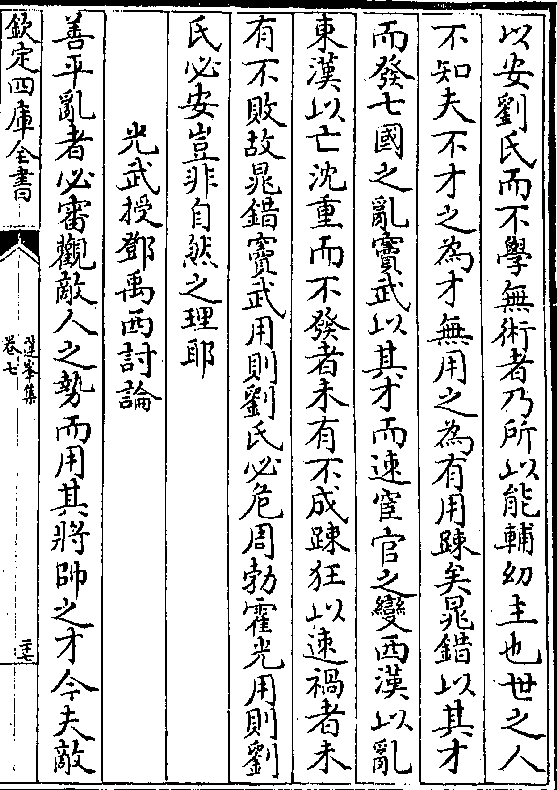 以安劉氏而不學無術者乃所以能輔幼主也世之人
不知夫不才之為才無用之為有用踈矣晁錯以其才
而發七國之亂竇武以其才而速宦官之變西漢以亂
東漢以亡沈重而不發者未有不成踈狂以速禍者未
有不敗故晁錯竇武用則劉氏必危周勃霍光用則劉
氏必安豈非自然之理耶
光武授鄧禹西討論
善平亂者必審觀敵人之勢而用其將帥之才今夫敵
欽定四庫全書
蓮峯集
卷七